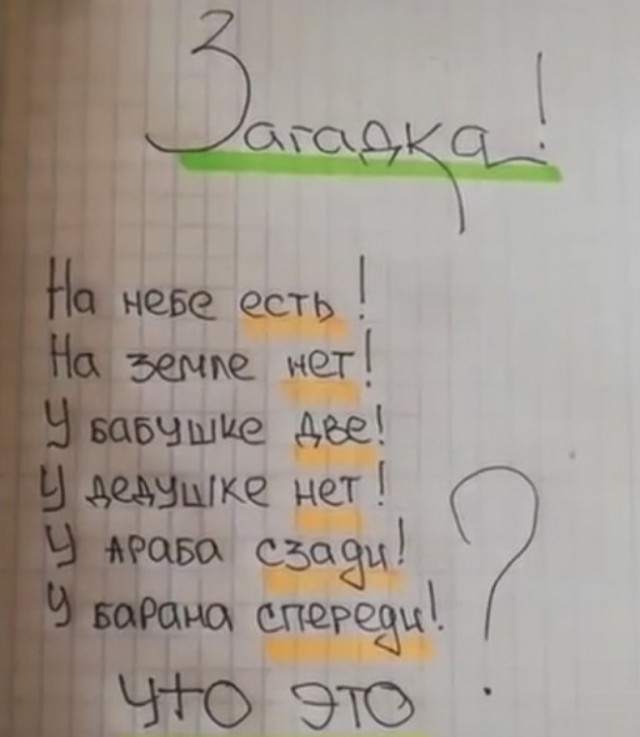 Загадка!
На небе есть!
На земле нет!
У бабушке две!
У дедушке нет!
У араба сзади!
У барана спереди!
Что это?